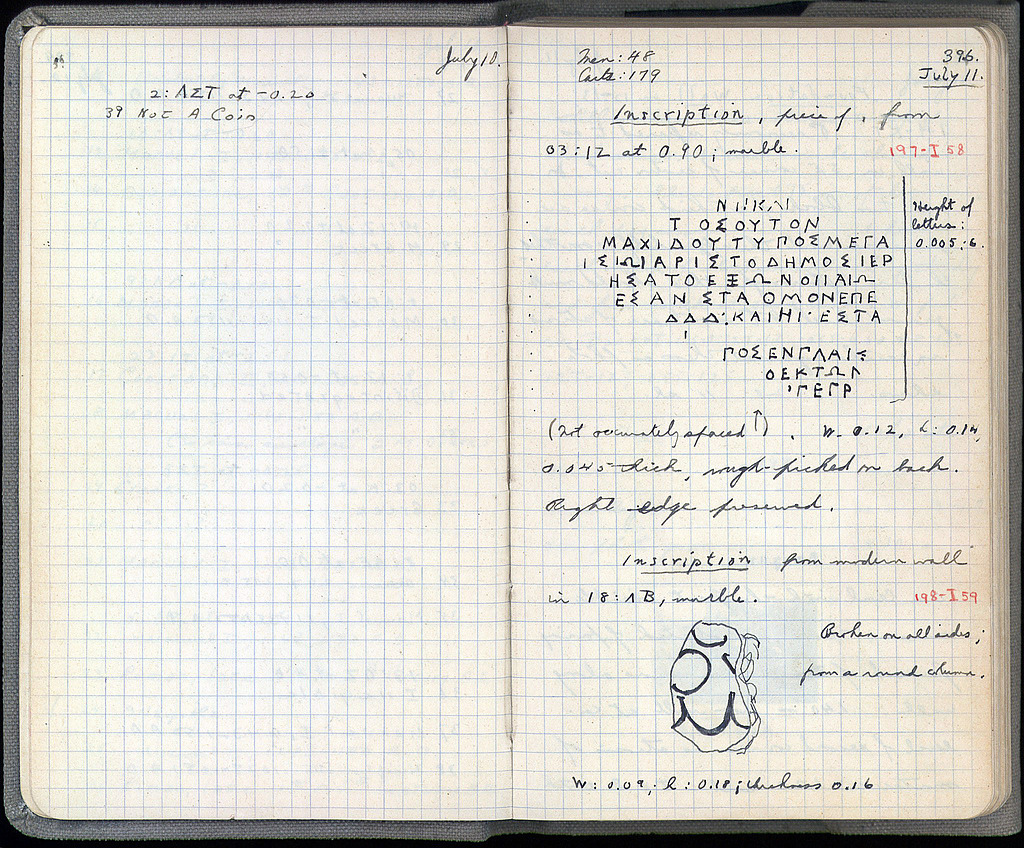 July 10.
2: ΛΣΤ at -0.20
39 Not A Coin
Men: 48
Carts: 179
396.
July 11.
Inscription, piece of, from
03:12 at 0.90; marble.
197-I 58
ΤΟΣΟΥΤΟΝ
ΜΑΧΙΔΟΥΤΥΠΟΣΜΕΓΑ
ΑΡΙΣΤΟΔΗΜΟΣΙΕΡ
ΗΣΑΤΟΕΞΩΝ
ΕΣΑΝΣΤΑΘΜΟΝΕΠΕ
ΔΔΔ:ΚΑΙΗΙ:ΕΣΤΑ
Ι
ΓΟΣΕΝΓΛΑΙΣ
ΘΕΚΤΩΛ
ΓΕΓΡ
Height of
letters:
0.005;6.
(not accurately spaced ↑). W. 0.12, L: 0.14,
0.045 thick, rough-picked on back.
Right edge preserved.
Inscription from modern wall
in 18:ΛΒ, marble.
198-I 59
Broken on all sides;
from a round column.
W: 0.09; L: 0.18; thickness 0.16